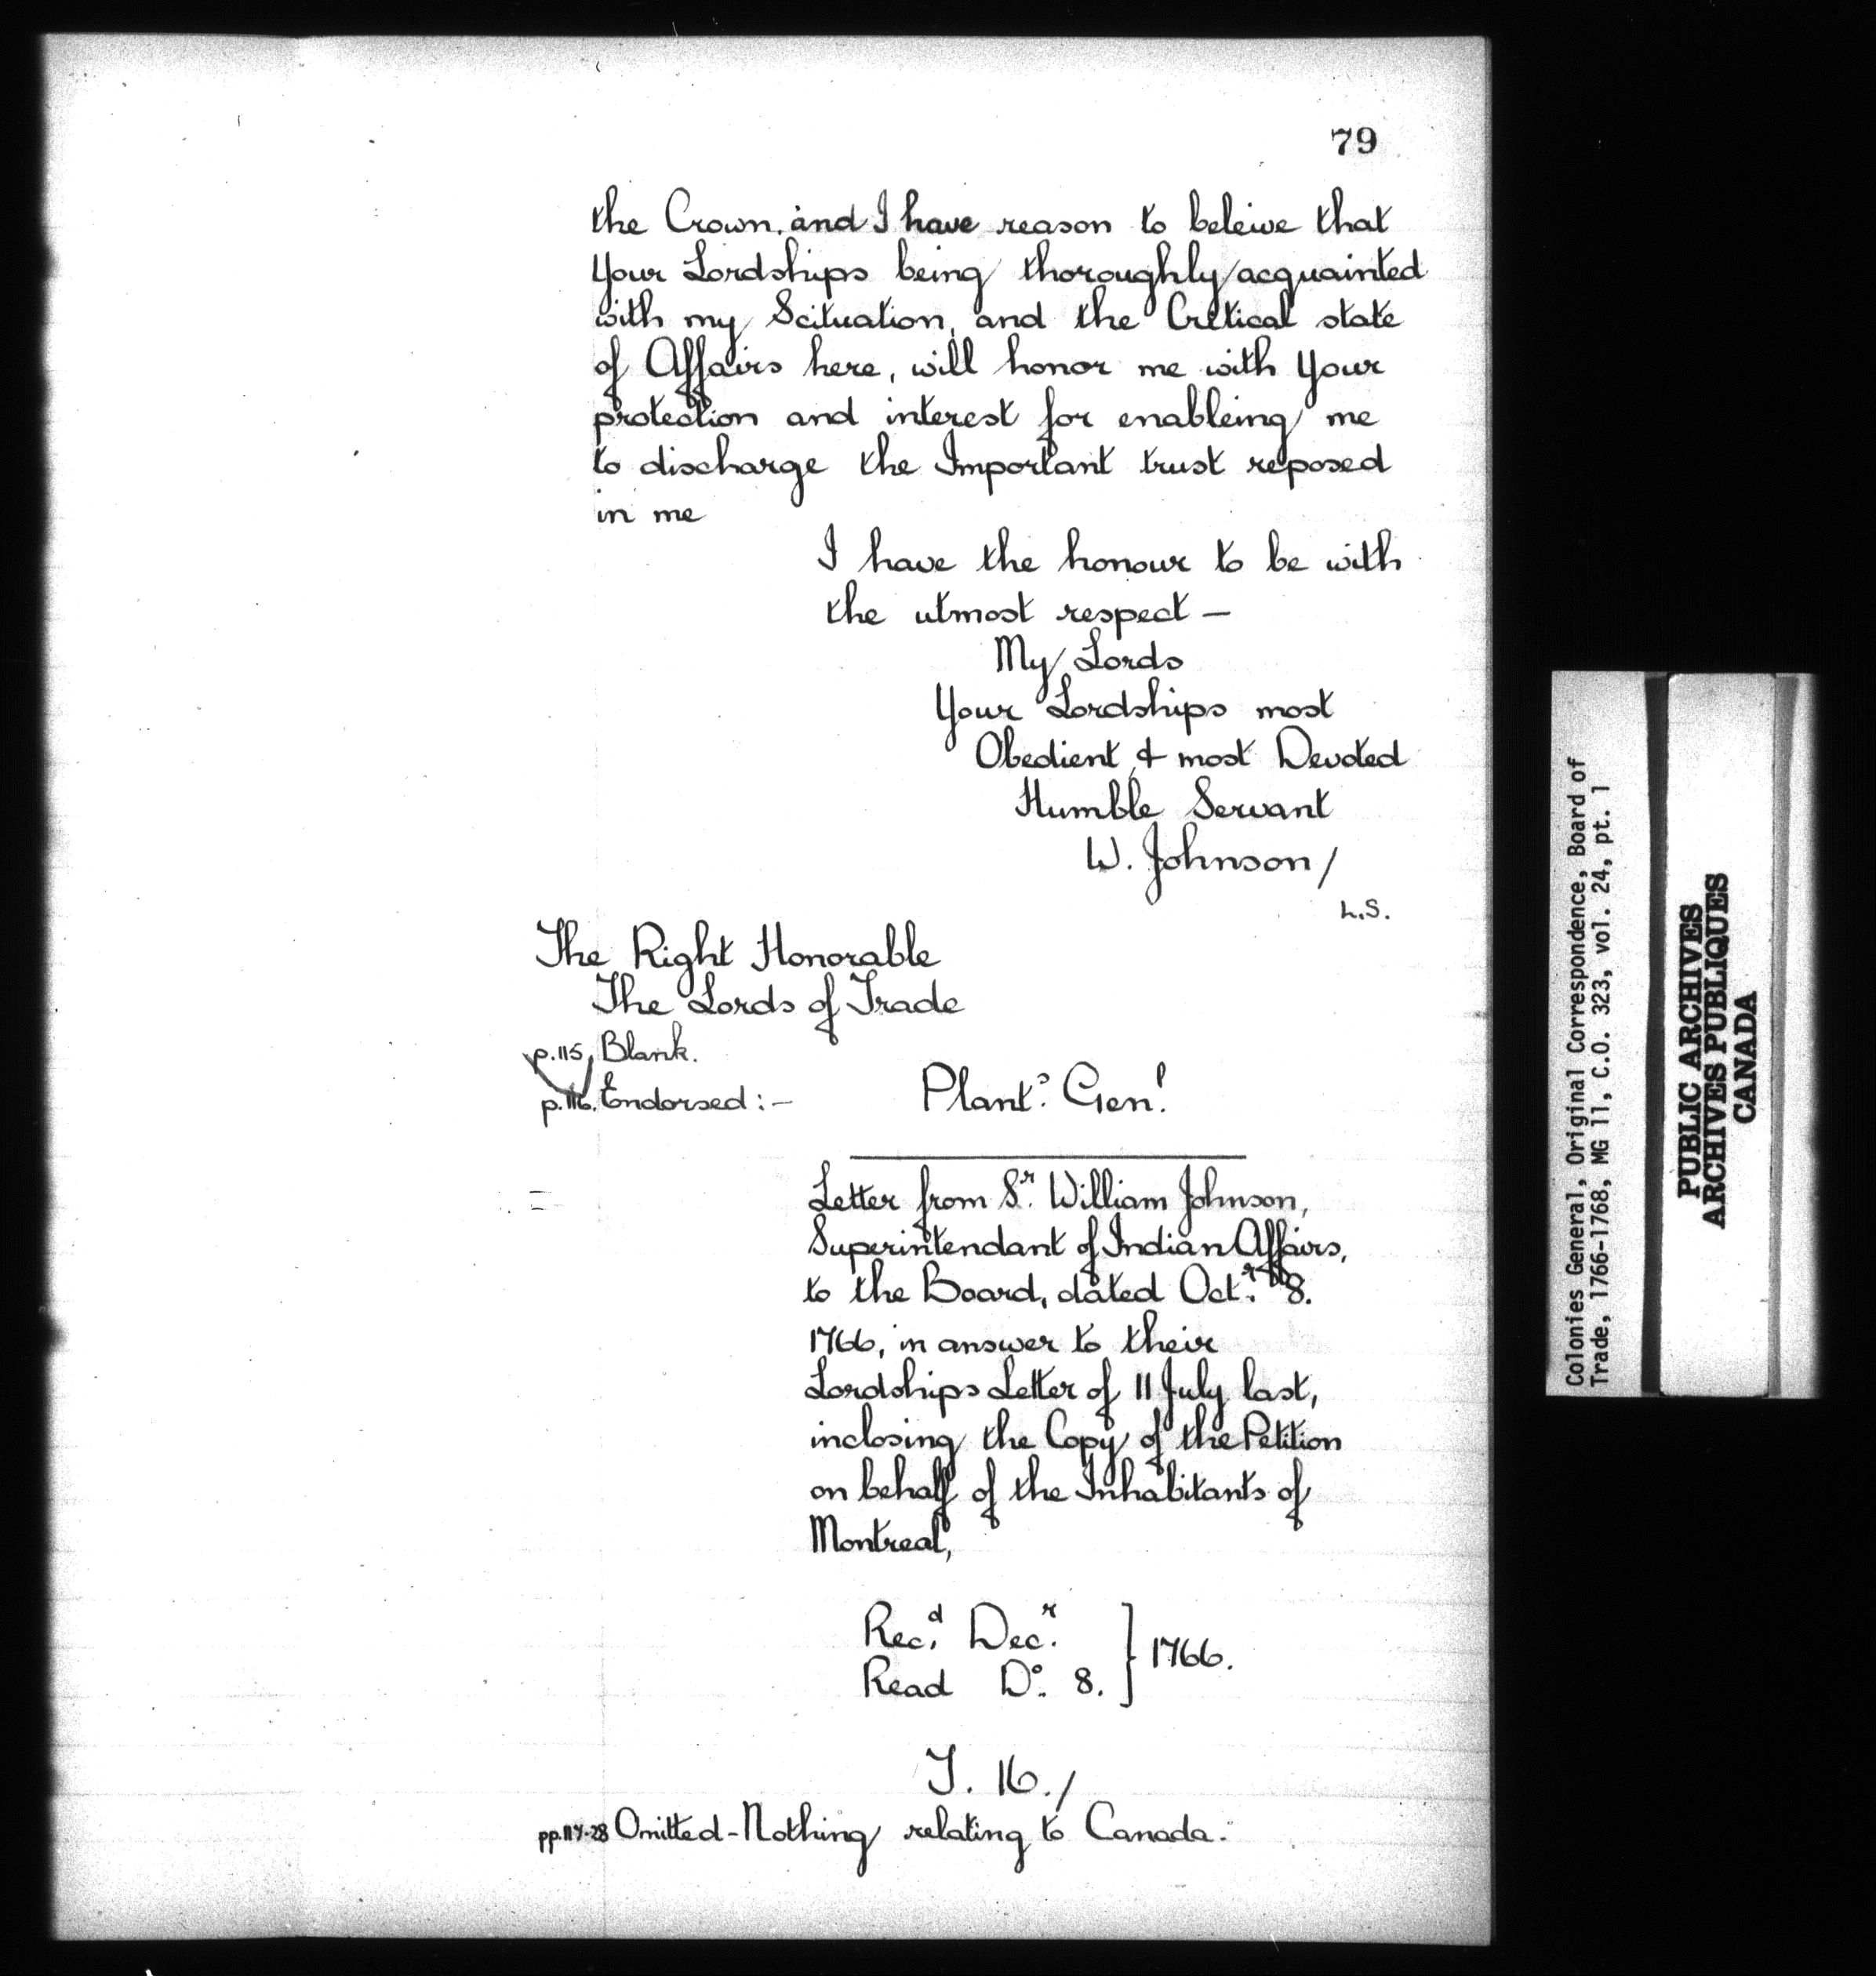 79
the Crown, and I have reason to beleive that
Your Lordships being thoroughly acquainted
with my Scituation, and the Critical state
of Affairs here, will honor me with Your
protection and interest for enableing me
to discharge the Important trust reposed
in me
I have the honour to be with
the utmost respect —
My Lords
Your Lordships most
Obedient & most Devoted
Humble Servant
W. Johnson /
L.S.
The Right Honorable
The Lords of Trade
p.115, Blank.
p.116. Endorsed :— Plant.s Gen.l
Letter from S.r William Johnson,
Superintendant of Indian Affairs,
to the Board, dated Oct.r 8.
1766, in answer to their
Lordships Letter of 11 July last,
inclosing the Copy of the Petition
on behalf of the Inhabitants of
Montreal,
Rec.d Dec.r
Read D.o 8. } 1766.
T. 16. /
pp.117-28 Omitted - Nothing relating to Canada.
Colonies General, Original Correspondence, Board of
Trade, 1766-1768, MG 11, C.O. 323, vol. 24, pt. 1
PUBLIC ARCHIVES
ARCHIVES PUBLIQUES
CANADA